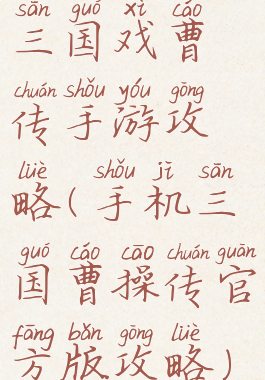 sān guó xì cáo
三国戏曹
chuán shǒu yóu gōng
传手游攻
lüè shǒu jī sān
略(手机三
guó cáo cāo chuán guān
国曹操传官
fāng bǎn gōng lüè
方版攻略)